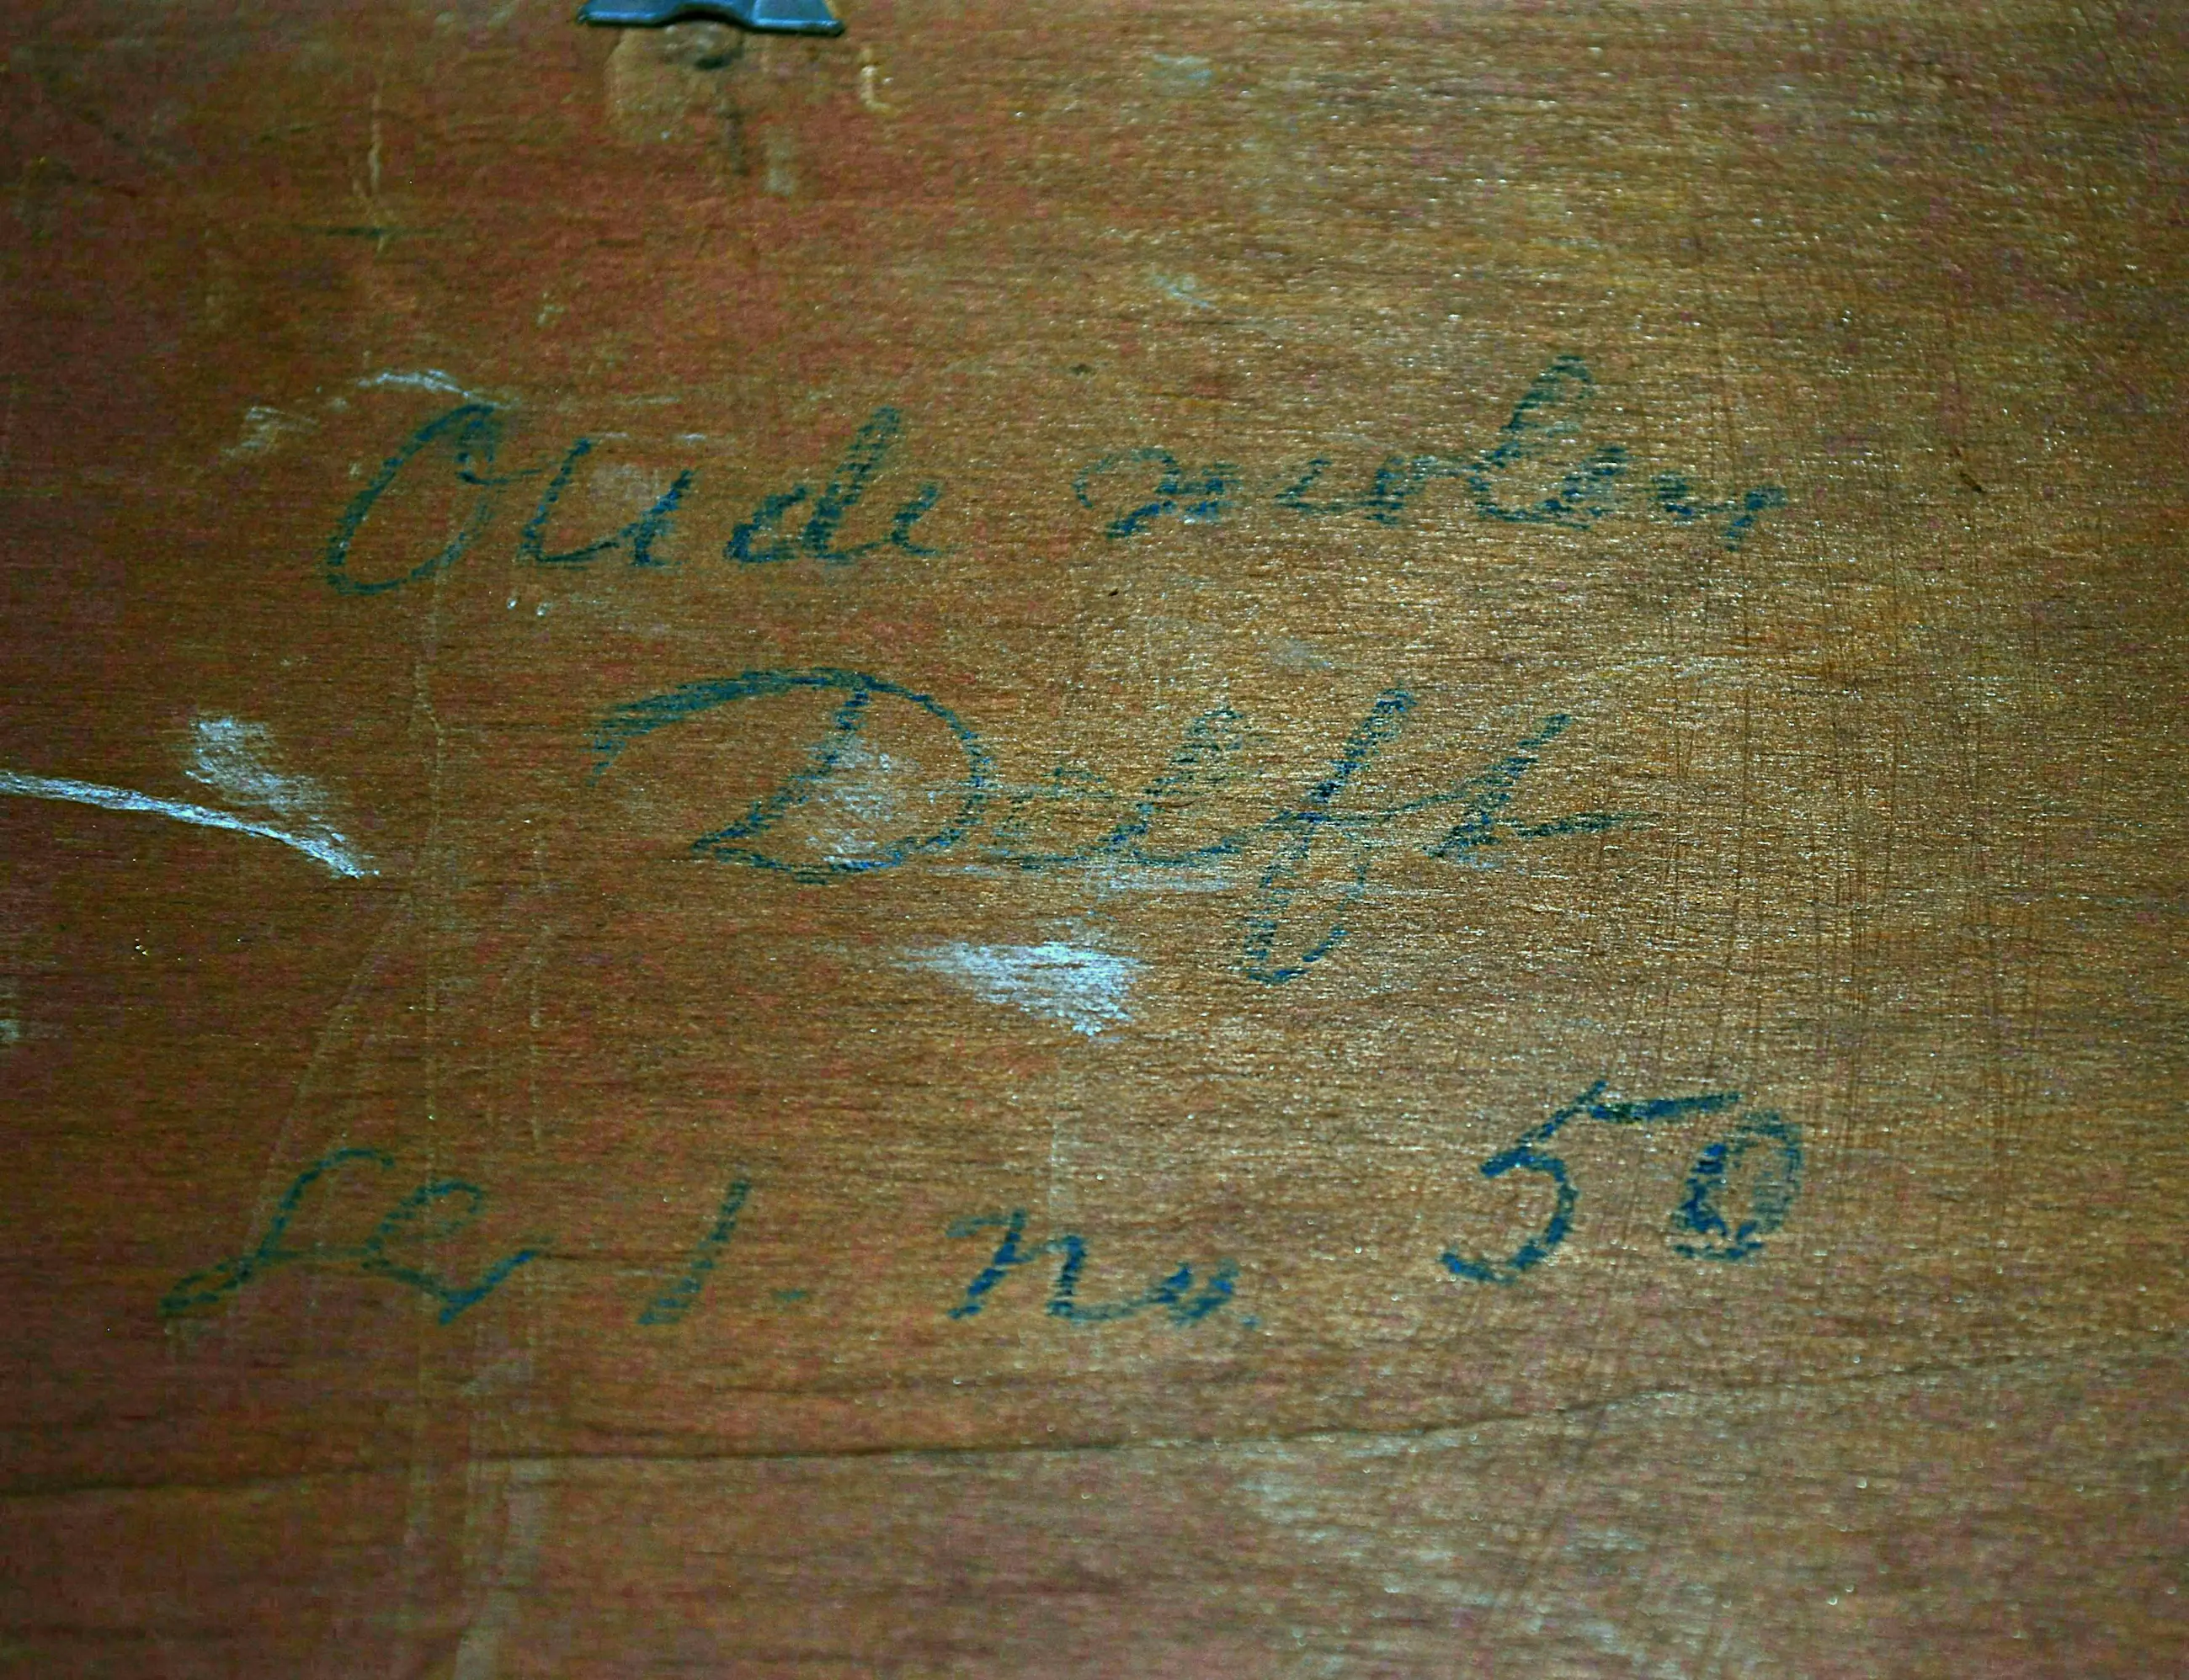 Oude molen
Delft
Ser 1. No. 50